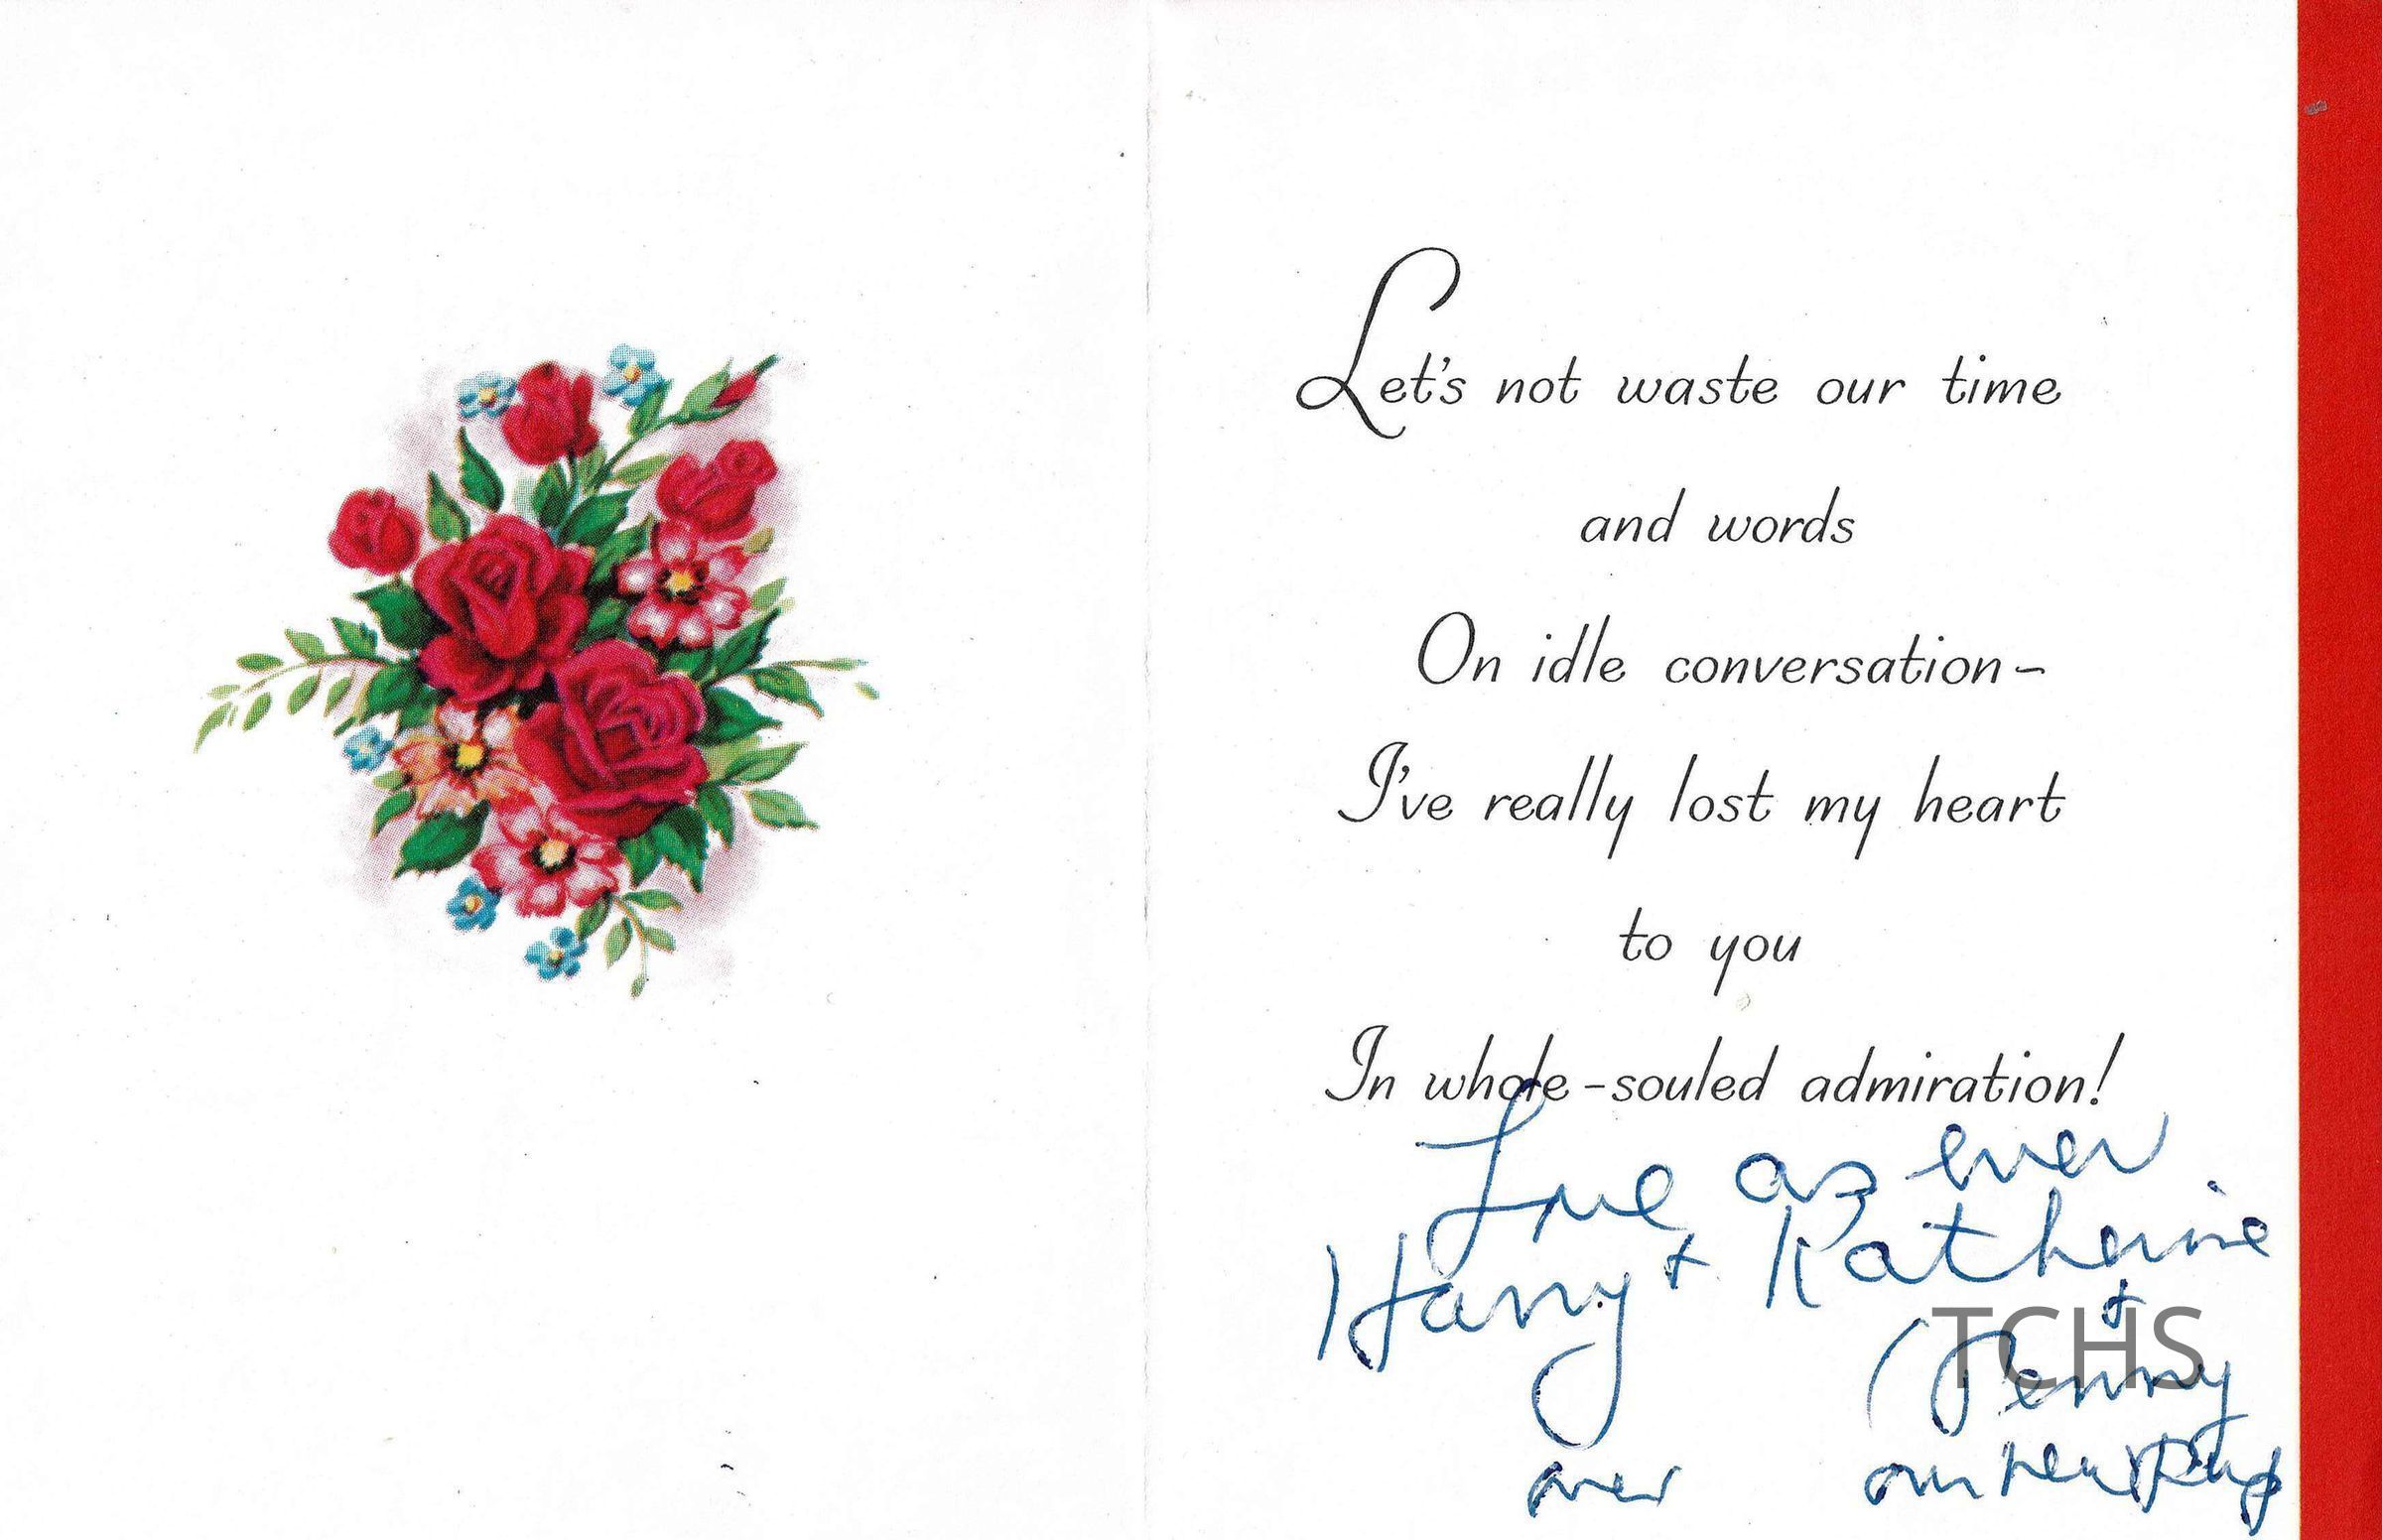 Let's not waste our time
and words
On idle conversation–
I've really lost my heart
to you
In whole-souled admiration!
Love as ever
Harry + Katherine
+
TCHS
(Penny
over our new Pup